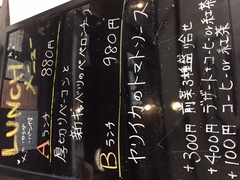 LUNCH
メニュー
Aランチ 880円
厚切りベーコンと
新キャベツのペペロンチーノ
Bランチ 980円
ヤリイカのトマトソース
+300円 前菜3種盛り合せ
+400円 デザート+コーヒーor紅茶
+100円 コーヒーor紅茶